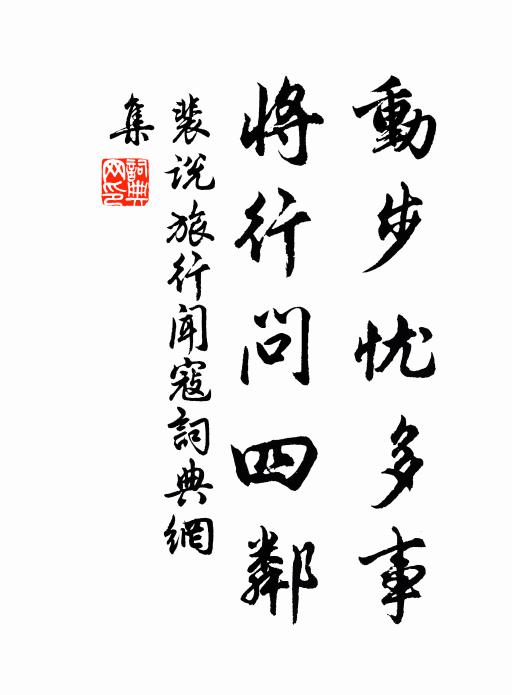 動步忧多事
将行问四鄰
裴说旅行闻寇詞典網
集
詞典
网印